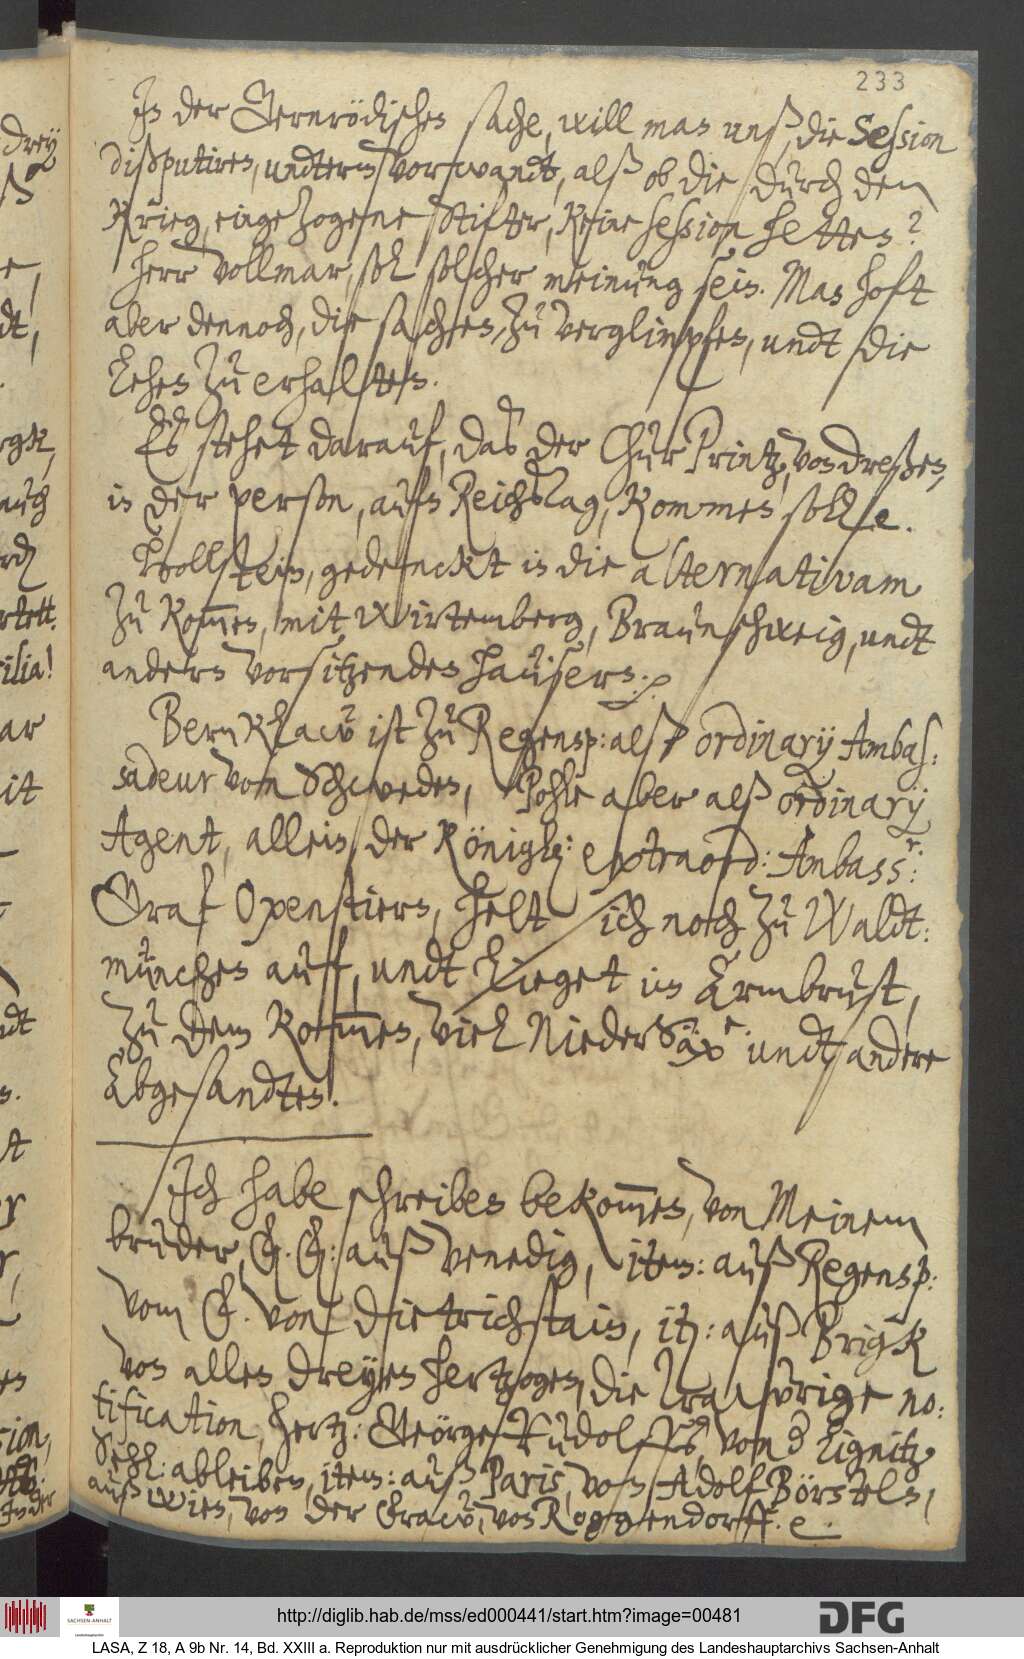 233
In der Gernrödischen sache, will man unß, die Session
dißputiren, undterm vorwandt, alß ob die durch den
Krieg, eingezogene Stifter, keine session hetten?
Herr Vollmar, sol solcher meinung sein. Man hoft
aber dennoch, die sachen, zu verglimpfen, undt die
Lehen zu erhalten.
Es stehet darauf, das der ChurPrintz, von Dreßen,
in der person, aufn Reichstag, kommen solle.
Hollstein, gedenckt in die alternativam
zu kommen, mit Wirtemberg, Braunschweig, undt
andern vorsitzenden haüsern. 
Bernklaw ist zu Regensp: alß ordinarij Ambas:
sadeur vom Schweden, Pohle aber alß ordinarij
Agent, allein der Königl: extraord: Ambass:r
Graf Oxenstiern, helt sich noch zu Waldt:
münchen auff, undt lieget im Armbrust,
Zu dem kommen, viel NiederSäx:e undt andere
Abgesandten.
Ich habe schreiben bekommen, von Meinem
bruder, F. F: auß Venedig, item: auß Regensp:
vom F. von Dietrichstain, it: auß Brigk
von allen dreyen hertzogen, die trawrige no:
tification, hertz: George Rudolffs, von der Lignitz
Sehl: ableiben, item: auß Paris, von Adolf Börsteln,
auß Wien, von der Fraw, von Roggendorff. e.
drey
ß
dt,
auch
ilia!
ar
it
dt
ion,
In der
http://diglib.hab.de/mss/ed000441/start.htm?image=00481
SACHSEN-ANHALT
DFG
LASA, Z 18, A 9b Nr. 14, Bd. XXIII a. Reproduktion nur mit ausdrücklicher Genehmigung des Landeshauptarchivs Sachsen-Anhalt